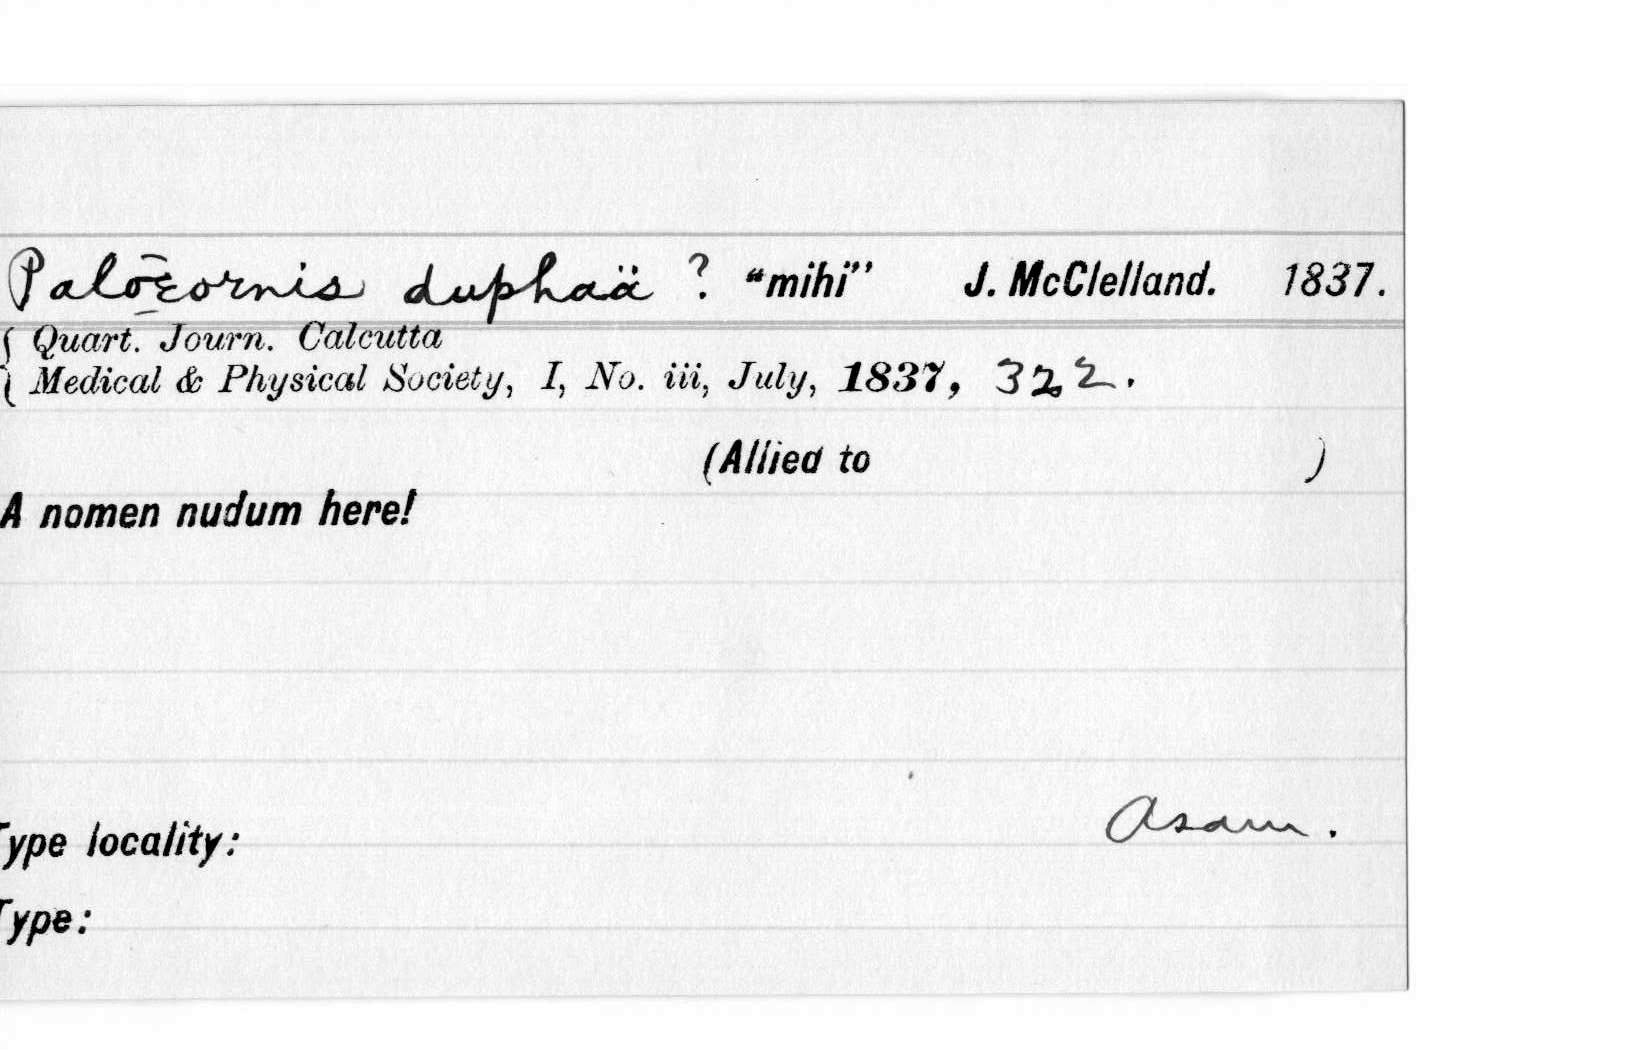 Paloeornis duphaä ? "mihi" J. McClelland. 1837.
{ Quart. Journ. Calcutta
{ Medical & Physical Society, I, No. iii, July, 1837, 322.
(Allied to )
A nomen nudum here!
Type locality: Asam.
Type: